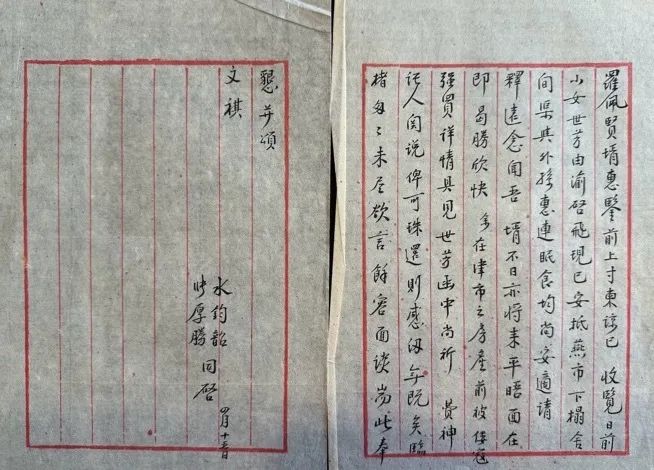 羅佩賢壻惠鑒前上寸柬諒已 收覽日前
小女世芳由渝啓飛現已安抵燕市下榻舍
間渠與外孫惠連眠食均尚安適請
釋遠念聞吾 壻不日亦將來平晤面在
即曷勝欣快 余在津市之房產前被倭寇
强買詳情具見世芳函中尚祈 費神
託人関説俾可珠還則感紉無既矣臨
楮匆々未尽欲言餘容面談耑此奉
懇并頌
文祺
水鈞韶
厚勝 同啓